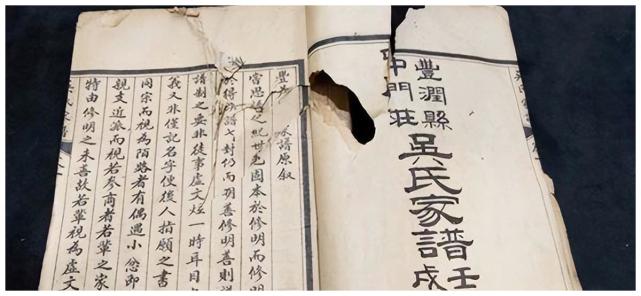 豐潤縣
中門莊
吳氏家譜
壬戌
譜原叙
嘗思譜之紀世也固本於修明而修明
善修明善則
譜制之安非徒事虛文炫一時耳目
義又非僅記名字便後人指願之書
同宗而視為陌路者有偶遇小忿即
親支近派而視若參商者若輩之家
特由修明之未善故若輩視為虛文